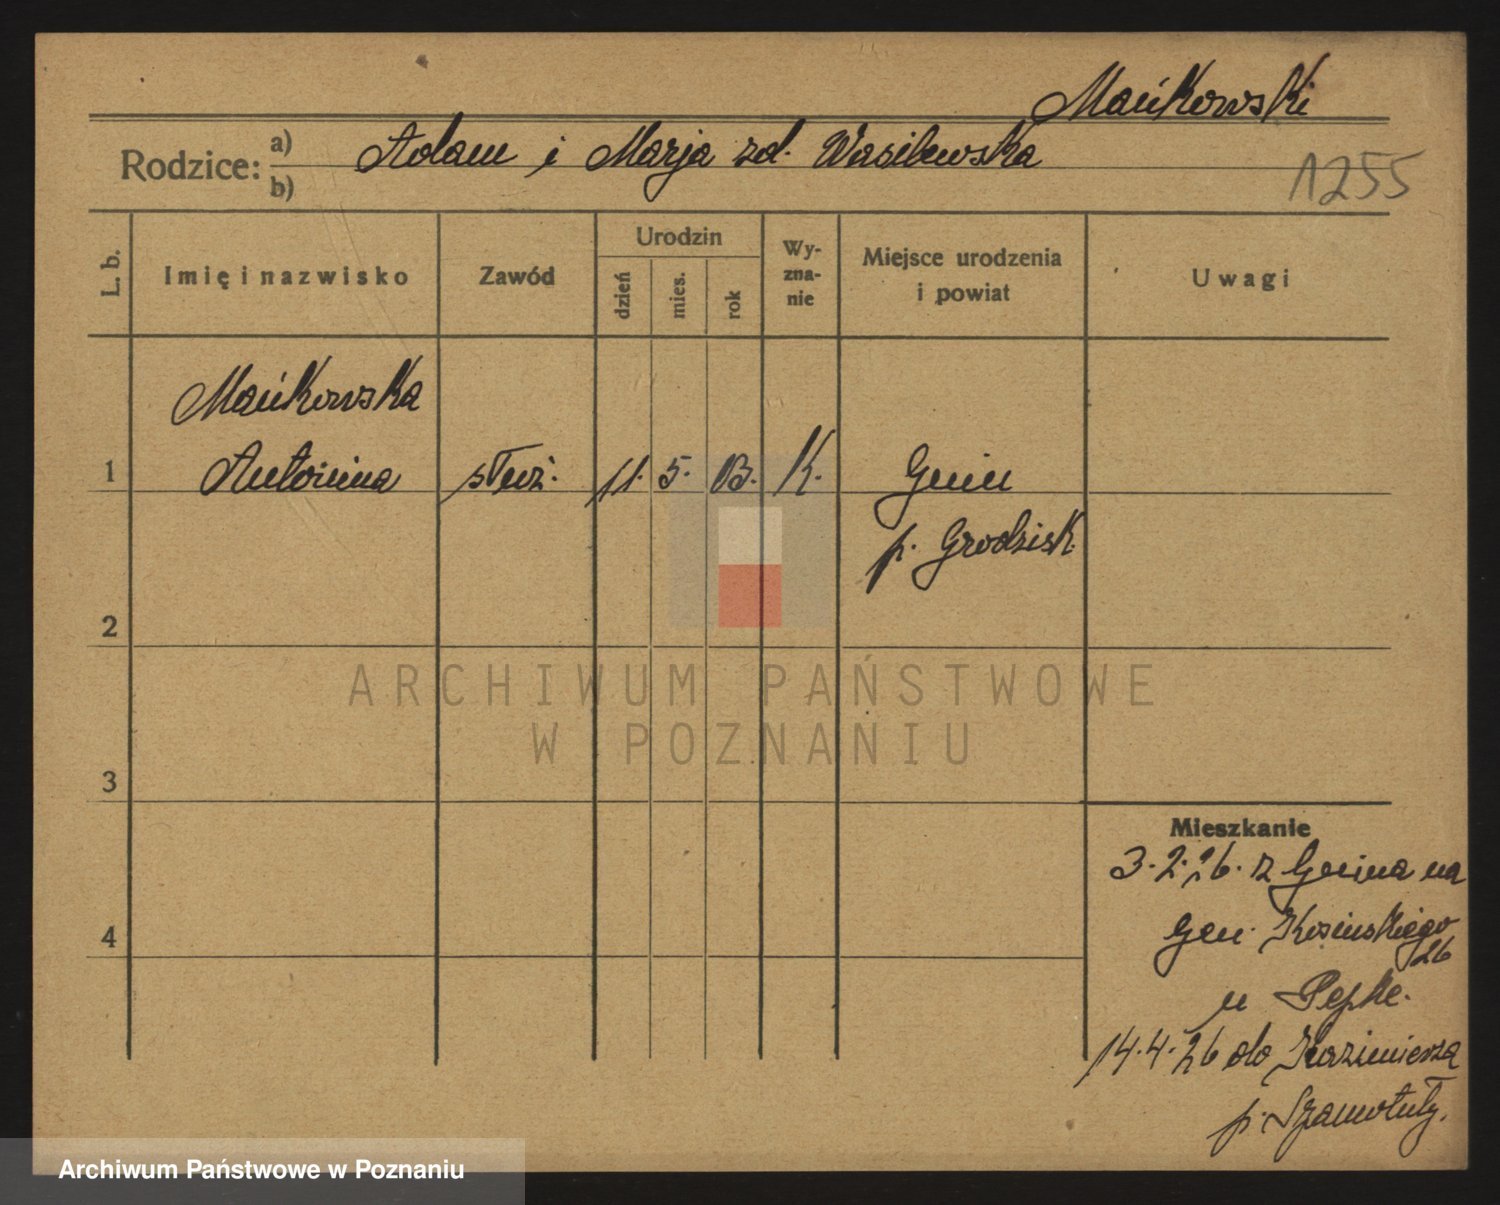 Mańkowski
Rodzice: a) Adam i Marja zd. Wasilewska
b)
1255
L. b.
Imię i nazwisko
Zawód
Urodzin
dzień
mies.
rok
Wy-
zna-
nie
Miejsce urodzenia
i powiat
Uwagi
Mańkowska
1 Antonina służ. 11. 5. 13. K. Gnin
p. Grodzisk
2
ARCHIWUM PAŃSTWOWE
W POZNANIU
3
Mieszkanie
3.2.26. z Gnina na
4
Gen. Kosińskiego
26
u Pepke.
14.4.26 do Kazimierza
p. Szamotuły.
Archiwum Państwowe w Poznaniu